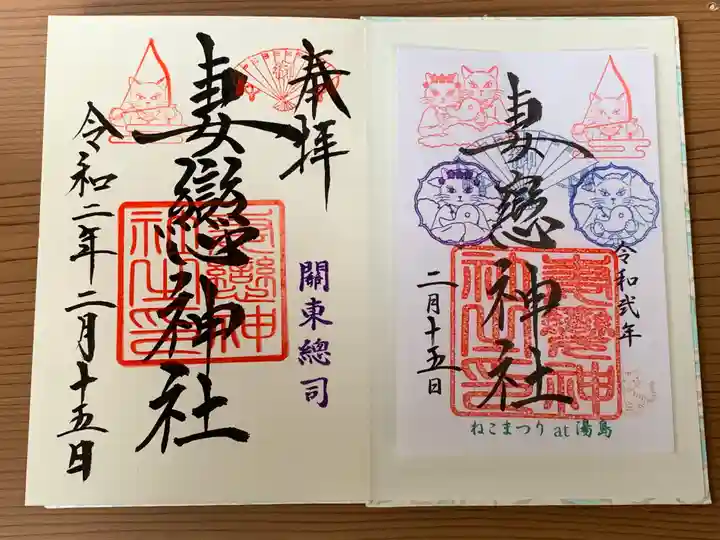 奉拝
妻戀神社
關東總司
令和二年二月十五日
妻戀神社之印
妻恋神社
令和弐年
二月十五日
妻戀神社之印
ねこまつり at 湯島